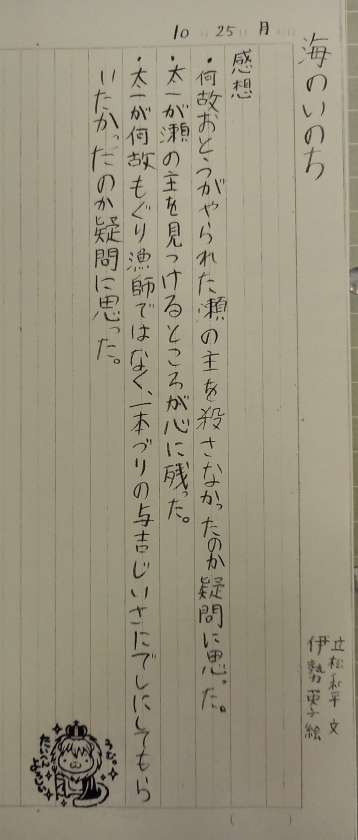 10 25 月
海のいのち
立松和平 文
伊勢英子 絵
感想
・何故おとうがやられた瀬の主を殺さなかったのか疑問に思った。
・太一が瀬の主を見つけるところが心に残った。
・太一が何故もぐり漁師ではなく、一本づりの与吉じいさにでしにしてもら
いたかったのか疑問に思った。
たいへん
よろしい